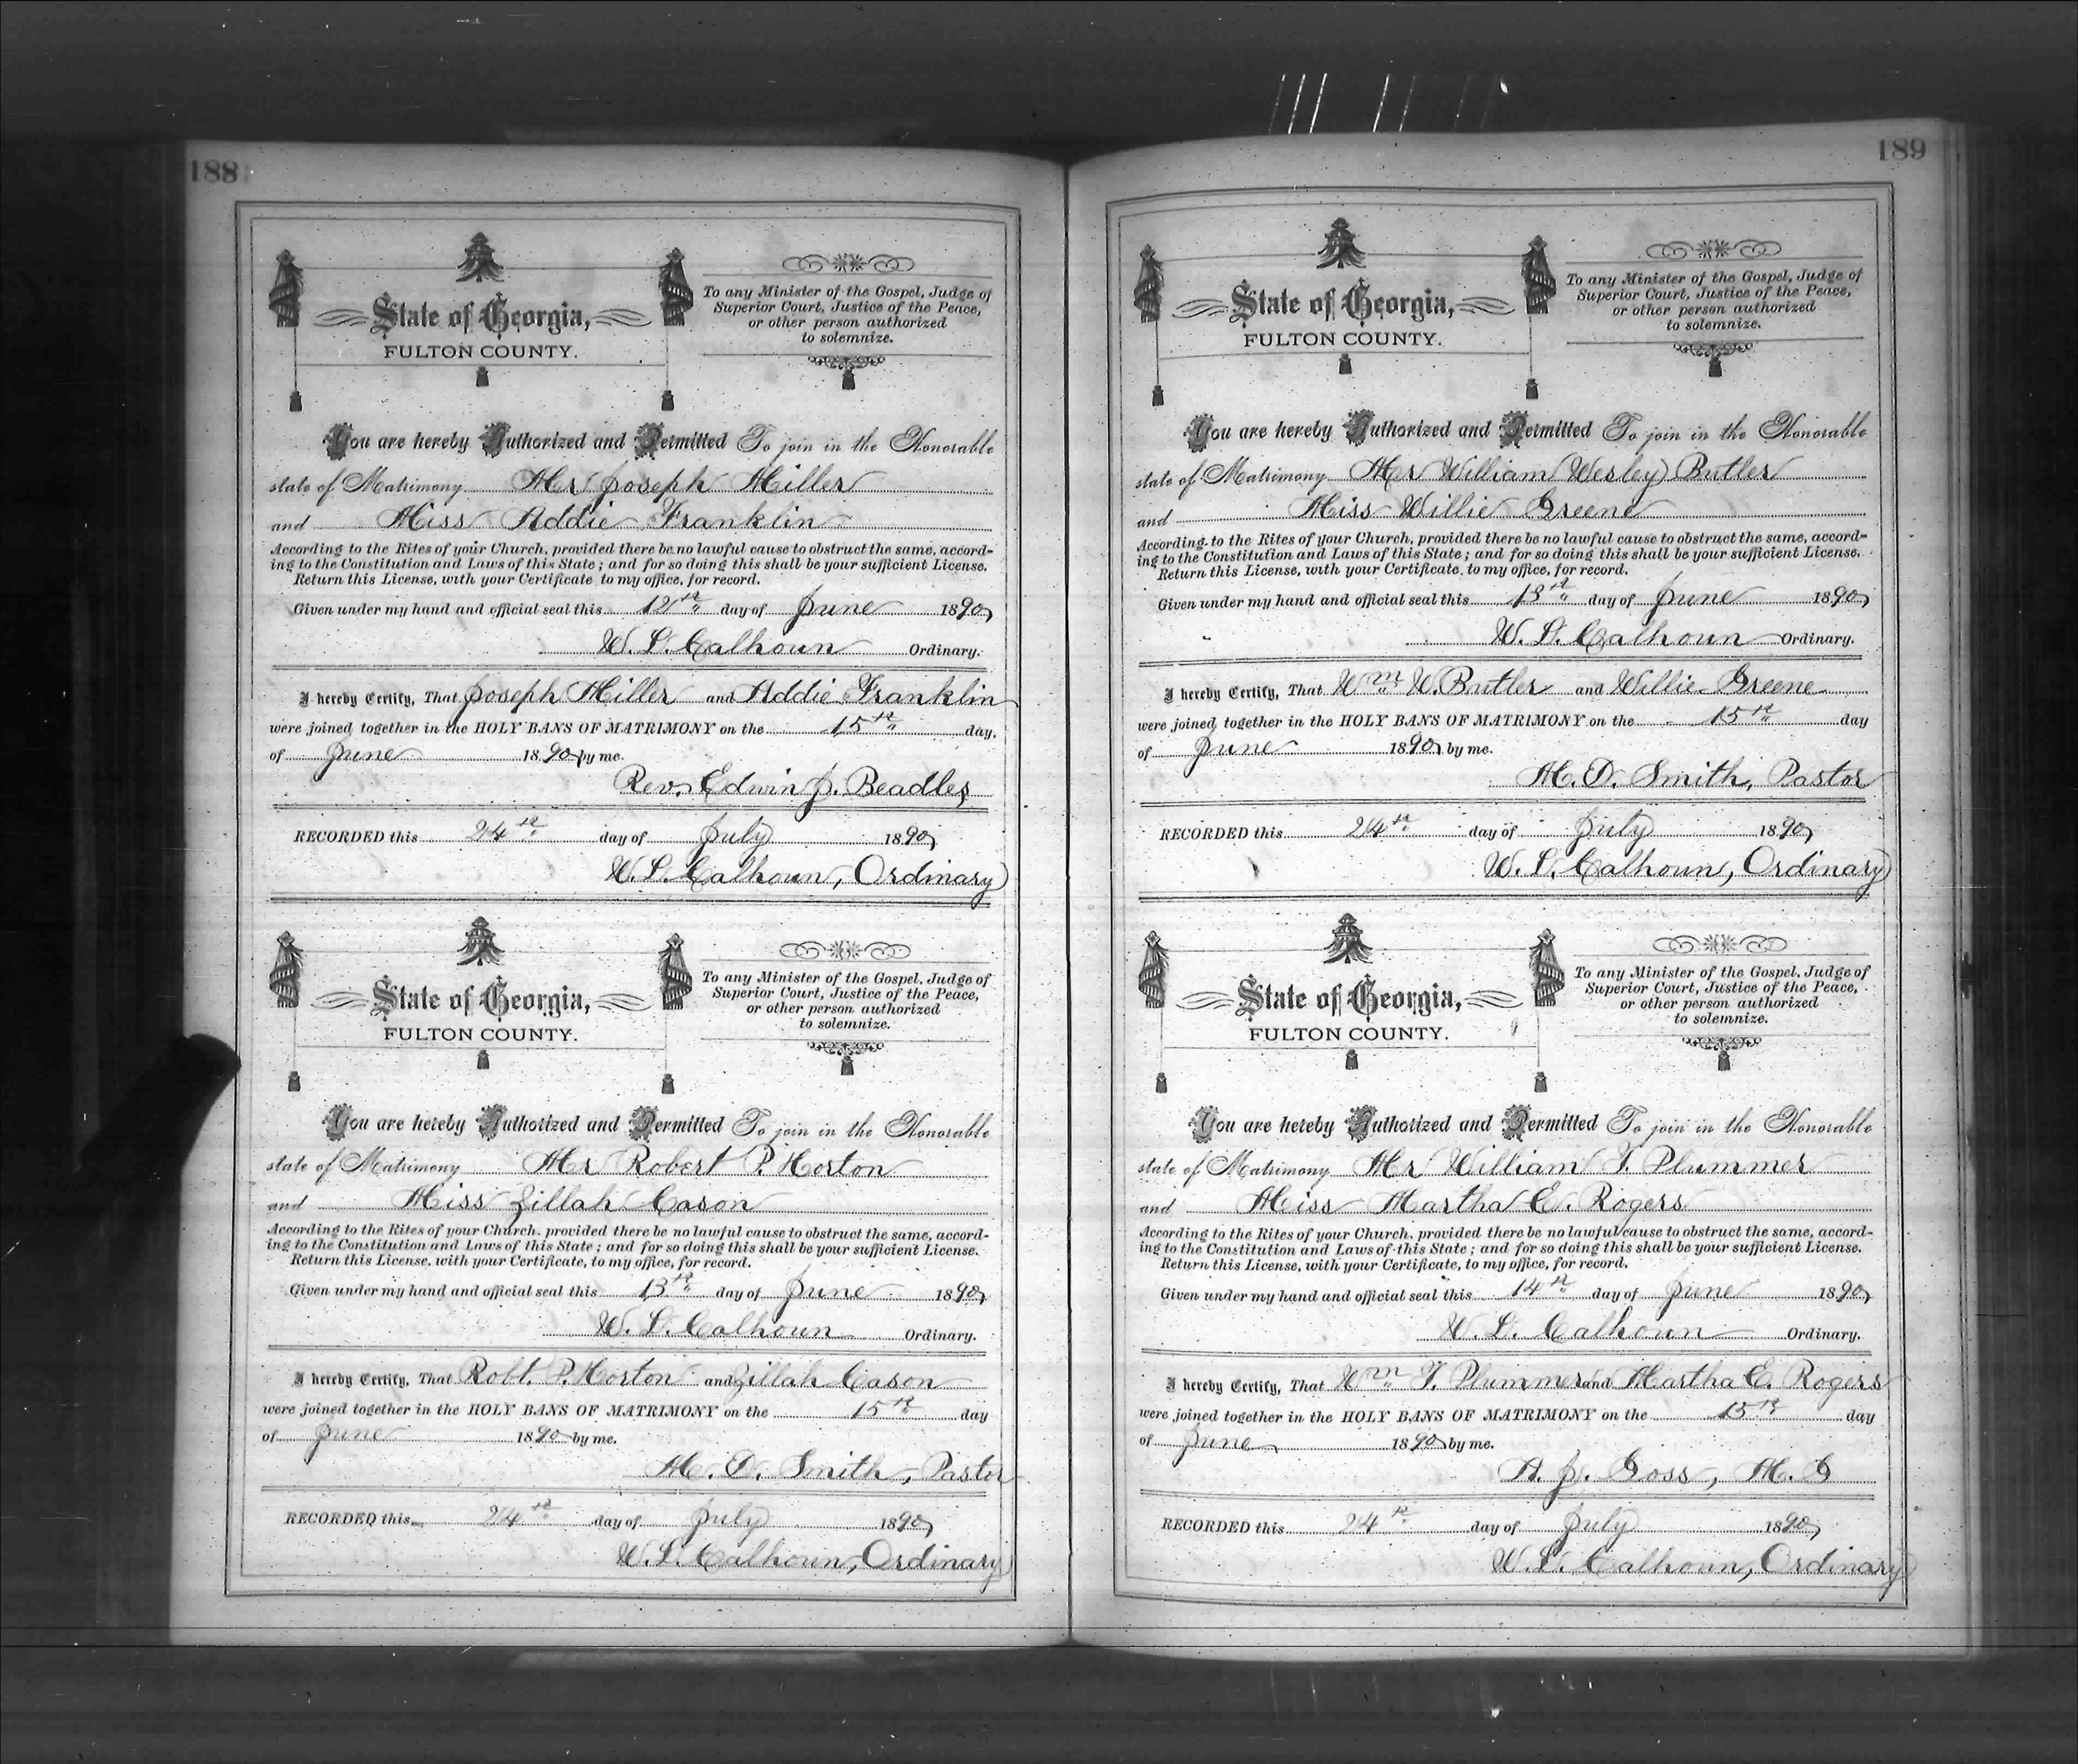 188
State of Georgia,
FULTON COUNTY.
To any Minister of the Gospel, Judge of
Superior Court, Justice of the Peace,
or other person authorized
to solemnize.
You are hereby Authorized and Permitted To join in the Honorable
state of Matrimony Mr Joseph Miller
and Miss Addie Franklin
According to the Rites of your Church, provided there be no lawful cause to obstruct the same, accord-
ing to the Constitution and Laws of this State; and for so doing this shall be your sufficient License.
Return this License, with your Certificate, to my office, for record.
Given under my hand and official seal this 12th day of June 1890
W. L. Calhoun Ordinary.
I hereby Certify, That Joseph Miller and Addie Franklin
were joined together in the HOLY BANS OF MATRIMONY on the 15th day.
of June 1890 by me.
Rev. Edwin J. Beadles
RECORDED this 24th day of July 1890
W. L. Calhoun, Ordinary
State of Georgia,
FULTON COUNTY.
To any Minister of the Gospel, Judge of
Superior Court, Justice of the Peace,
or other person authorized
to solemnize.
You are hereby Authorized and Permitted To join in the Honorable
state of Matrimony Mr Robert P. Horton
and Miss Zillah Cason
According to the Rites of your Church, provided there be no lawful cause to obstruct the same, accord-
ing to the Constitution and Laws of this State; and for so doing this shall be your sufficient License.
Return this License, with your Certificate, to my office, for record.
Given under my hand and official seal this 13th day of June 1890
W. L. Calhoun Ordinary.
I hereby Certify, That Robt. P. Horton and Zillah Cason
were joined together in the HOLY BANS OF MATRIMONY on the 15th day
of June 1890 by me.
M. D. Smith, Pastor
RECORDED this 24th day of July 1890
W. L. Calhoun, Ordinary
189
State of Georgia,
FULTON COUNTY.
To any Minister of the Gospel, Judge of
Superior Court, Justice of the Peace,
or other person authorized
to solemnize.
You are hereby Authorized and Permitted To join in the Honorable
state of Matrimony Mr William Wesley Butler
and Miss Willie Greene
According to the Rites of your Church, provided there be no lawful cause to obstruct the same, accord-
ing to the Constitution and Laws of this State; and for so doing this shall be your sufficient License.
Return this License, with your Certificate, to my office, for record.
Given under my hand and official seal this 13th day of June 1890
W. L. Calhoun Ordinary.
I hereby Certify, That Wm W. Butler and Willie Greene
were joined together in the HOLY BANS OF MATRIMONY on the 15th day
of June 1890 by me.
M. D. Smith, Pastor
RECORDED this 24th day of July 1890
W. L. Calhoun, Ordinary
State of Georgia,
FULTON COUNTY.
To any Minister of the Gospel, Judge of
Superior Court, Justice of the Peace,
or other person authorized
to solemnize.
You are hereby Authorized and Permitted To join in the Honorable
state of Matrimony Mr William T. Plummer
and Miss Martha E. Rogers
According to the Rites of your Church, provided there be no lawful cause to obstruct the same, accord-
ing to the Constitution and Laws of this State; and for so doing this shall be your sufficient License.
Return this License, with your Certificate, to my office, for record.
Given under my hand and official seal this 14th day of June 1890
W. L. Calhoun Ordinary.
I hereby Certify, That Wm T. Plummer and Martha E. Rogers
were joined together in the HOLY BANS OF MATRIMONY on the 15th day
of June 1890 by me.
A. J. Goss, M. G
RECORDED this 24th day of July 1890
W. L. Calhoun, Ordinary